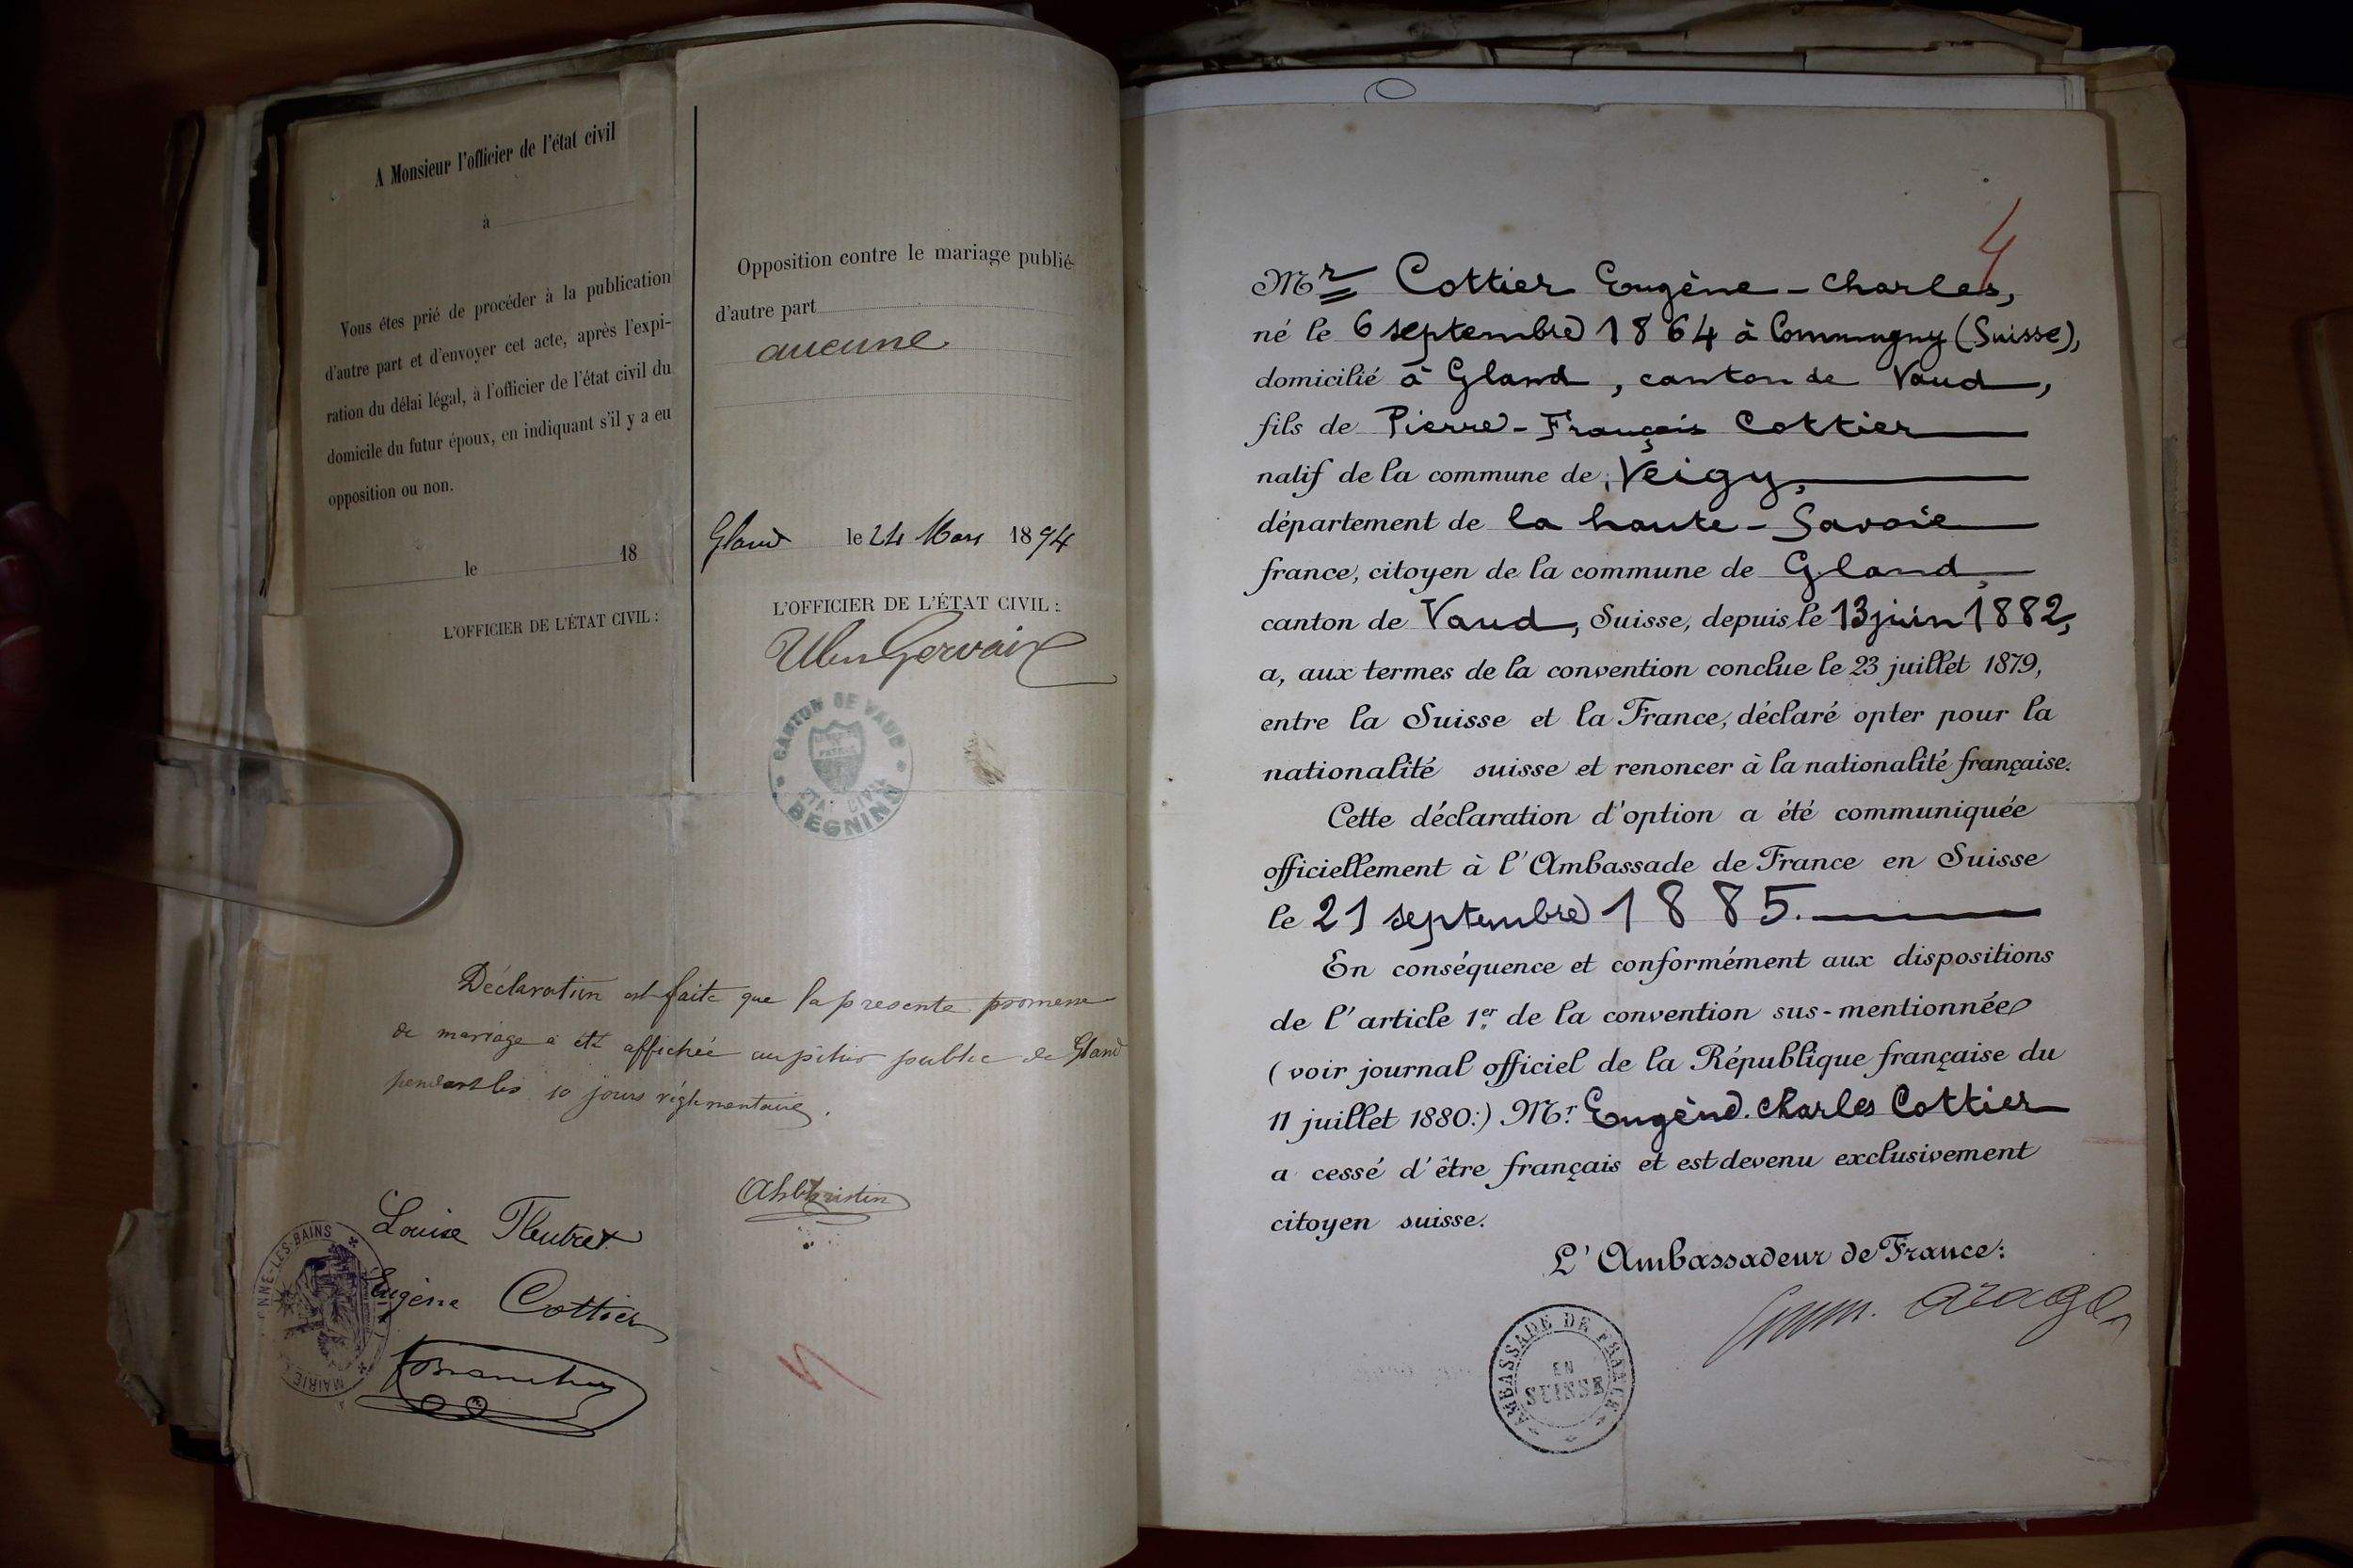 A Monsieur l'officier de l'état civil
à
Vous êtes prié de procéder à la publication
d'autre part et d'envoyer cet acte, après l'expi-
ration du délai légal, à l'officier de l'état civil du
domicile du futur époux, en indiquant s'il y a eu
opposition ou non.
le 18
L'OFFICIER DE L'ÉTAT CIVIL :
Opposition contre le mariage publié
d'autre part
aucune
Gland le 24 Mars 1894
L'OFFICIER DE L'ÉTAT CIVIL :
Gervaix
CANTON DE VAUD
ETAT CIVIL
BEGNINS
Déclaration est faite que la presente promesse
de mariage a été affichée au pilier public de Gland
pendant les 10 jours réglementaires.
Louise
Eugène Cottier
MAIRIE
LES-BAINS
4
Mr Cottier Eugène - Charles,
né le 6 septembre 1864 à Commugny (Suisse),
domicilié à Gland, canton de Vaud,
fils de Pierre-François Cottier
natif de la commune de Veigy,
département de la haute-Savoie
france, citoyen de la commune de Gland,
canton de Vaud, Suisse, depuis le 13 juin 1882,
a, aux termes de la convention conclue le 23 juillet 1879,
entre la Suisse et la France, déclaré opter pour la
nationalité suisse et renoncer à la nationalité française.
Cette déclaration d'option a été communiquée
officiellement à l'Ambassade de France en Suisse
le 21 septembre 1885.
En conséquence et conformément aux dispositions
de l'article 1er de la convention sus-mentionnée
(voir journal officiel de la République française du
11 juillet 1880:) Mr. Eugène. Charles Cottier
a cessé d'être français et est devenu exclusivement
citoyen suisse.
L'Ambassadeur de France:
Arago
AMBASSADE DE FRANCE
EN
SUISSE